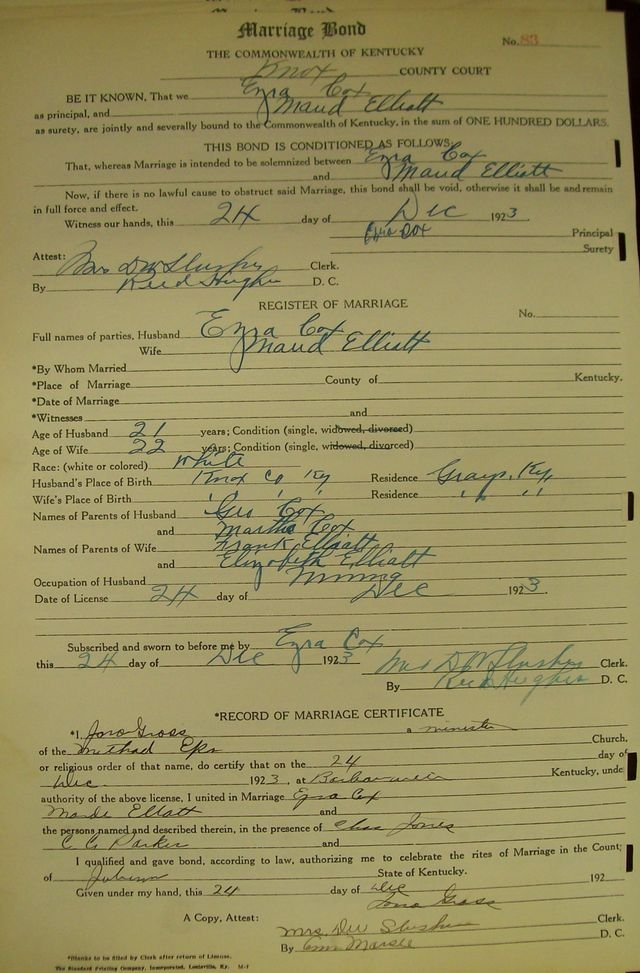 Marriage Bond
No. 83
THE COMMONWEALTH OF KENTUCKY
Knox COUNTY COURT
BE IT KNOWN, That we Ezra Cox
as principal, and Maud Elliatt
as surety, are jointly and severally bound to the Commonwealth of Kentucky, in the sum of ONE HUNDRED DOLLARS.
THIS BOND IS CONDITIONED AS FOLLOWS:
That, whereas Marriage is intended to be solemnized between Ezra Cox
and Maud Elliatt
Now, if there is no lawful cause to obstruct said Marriage, this bond shall be void, otherwise it shall be and remain
in full force and effect.
Witness our hands, this 24 day of Dec 1923.
Ezra Cox Principal
Surety
Attest:
Mrs D W Slusher Clerk.
By Reed Hughes D. C.
REGISTER OF MARRIAGE
No.
Full names of parties, Husband Ezra Cox
Wife Maud Elliatt
*By Whom Married
*Place of Marriage County of Kentucky.
*Date of Marriage
*Witnesses and
Age of Husband 21 years; Condition (single, widowed, divorced)
Age of Wife 22 years; Condition (single, widowed, divorced)
Race: (white or colored) White
Husband's Place of Birth Knox Co Ky Residence Grays, Ky,
Wife's Place of Birth " " " Residence " "
Names of Parents of Husband Geo Cox
and Martha Cox
Names of Parents of Wife Frank Elliatt
and Elizabeth Elliatt
Occupation of Husband Mining
Date of License 24 day of Dec 1923.
Subscribed and sworn to before me by Ezra Cox
this 24 day of Dec 1923 Mrs D W Slusher Clerk.
By Reed Hughes D. C.
*RECORD OF MARRIAGE CERTIFICATE
*I, Gross a minister
of the Methad Eps Church.
or religious order of that name, do certify that on the 24 day of
Dec. 1923, at Kentucky, unde
authority of the above license, I united in Marriage Ezra Cox
Maude Elliatt and
the persons named and described therein, in the presence of Chas Jones
C C Parker and
I qualified and gave bond, according to law, authorizing me to celebrate the rites of Marriage in the Count;
of State of Kentucky. 192
Given under my hand, this 24 day of Dec
Gross
A Copy, Attest:
Mrs. D W Slusher Clerk.
By D. C.
*Blanks to be filled by Clerk after return of License.
The Standard Printing Company, Incorporated, Louisville, Ky. M-7